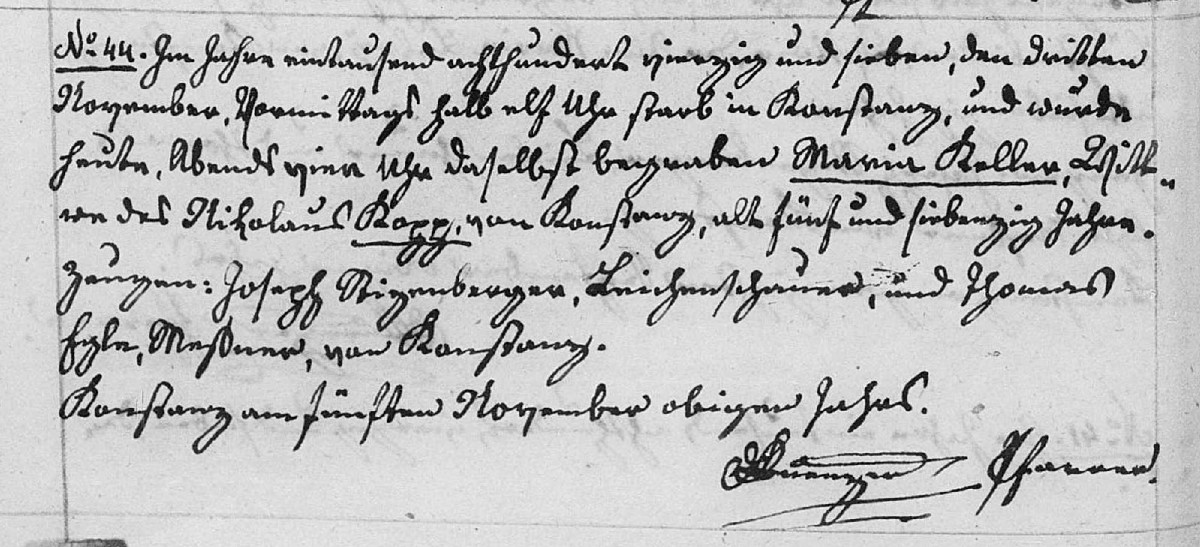 No 44. Im Jahre eintausend achthundert vierzig und sieben, den dritten
November, Vormittags halb elf Uhr starb in Konstanz, und wurde
heute, Abends vier Uhr daselbst begraben Maria Keller, Witt-
we des Nikolaus Kopp, von Konstanz, alt fünf und siebenzig Jahre.
Zeugen: Joseph Stigenberger, Leichenschauer, und Thomas
Egle, Meßner, von Konstanz.
Konstanz am fünften November obigen Jahrs.
Pfarrer.